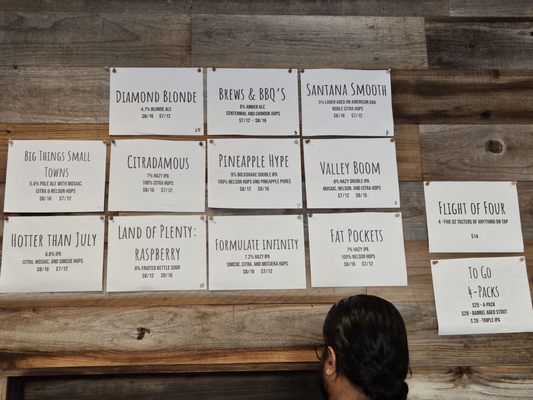 Diamond Blonde
4.7% Blonde Ale
$8/16 $7/12
Brews & BBQ's
6% Amber Ale
Centennial and Chinook Hops
$7/12 - $8/16
Santana Smooth
5% Lager Aged on American Oak
Noble Citra Hops
$8/16 $7/12
Big Things Small
Towns
5.4% Pale Ale with Mosaic,
Citra & Nelson Hops
$8/16 $7/12
Citradamous
7% Hazy IPA
100% Citra Hops
$8/16 $7/12
Pineapple Hype
9% Milkshake Double IPA
100% Nelson Hops and Pineapple Puree
$8/12 $9/16
Valley Boom
8% Hazy Double IPA
Mosaic, Nelson, and Citra Hops
$8/16 $7/12
Hotter Than July
6.8% IPA
Citra, Mosaic, and Simcoe Hops
$8/16 $7/12
Land of Plenty:
Raspberry
8% Fruited Kettle Sour
$8/12 $9/16
Formulate Infinity
7.2% Hazy IPA
Simcoe, Citra, and Motueka Hops
$8/16 $7/12
Fat Pockets
7% Hazy IPA
100% Nelson Hops
$8/16 $7/12
Flight of Four
4 -Five oz Tasters of Anything on Tap
$14
To Go
4-Packs
$25 - 4-Pack
$28 - Barrel Aged Stout
$26 - Triple IPA